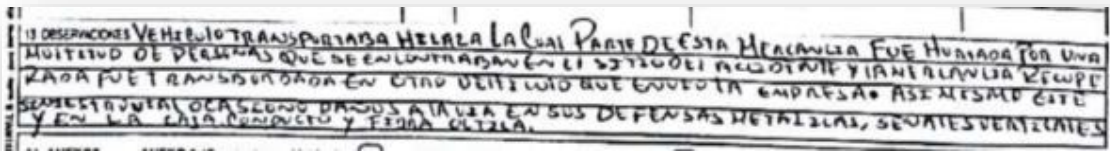 13 OBSERVACIONES VEHICULO TRANSPORTABA HILAZA LA CUAL PARTE DE ESTA MERCANCIA FUE HURTADA POR UNA
MULTITUD DE PERSONAS QUE SE ENCONTRABAN EN EL SITIO DEL ACCIDENTE Y LA MERCANCIA RECUPE
RADA FUE TRANSBORDADA EN OTRO VEHICULO QUE ENVIO LA EMPRESA. ASI MISMO ESTE
SINIESTRO VIAL OCASIONO DAÑOS A LA VIA EN SUS DEFENSAS METALICAS, SEÑALES VERTICALES
Y EN LA CAJA CONDUCTO Y FIBRA OPTICA.